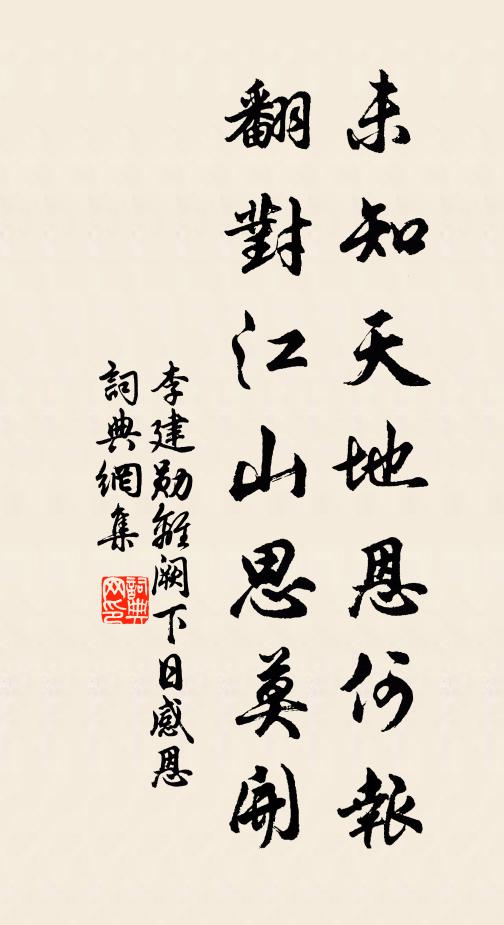 未知天地恩何報
翻對江山思莫開
李建勛離闕下日感恩
詞典網集
詞典網印